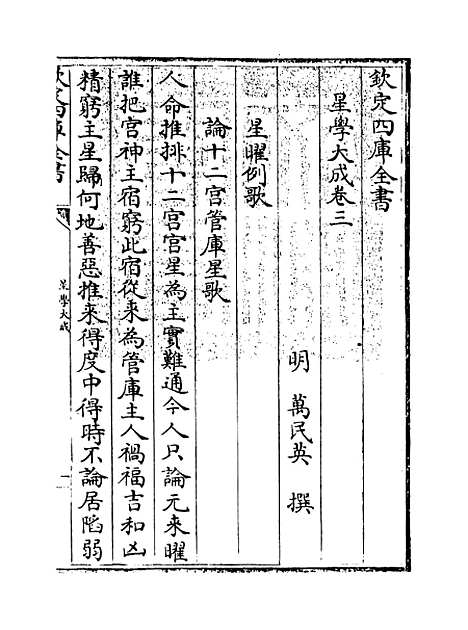 欽定四庫全書
星學大成卷三
明 萬民英 撰
星曜例歌
論十二宮管庫星歌
人命推排十二宮宮星為主實難通今人只論元來曜
誰把宮神主宿窮此宿從來為管庫主人禍福吉和凶
精窮主星歸何地善惡推來得度中得時不論居陷弱
欽定四庫全書
星學大成
一